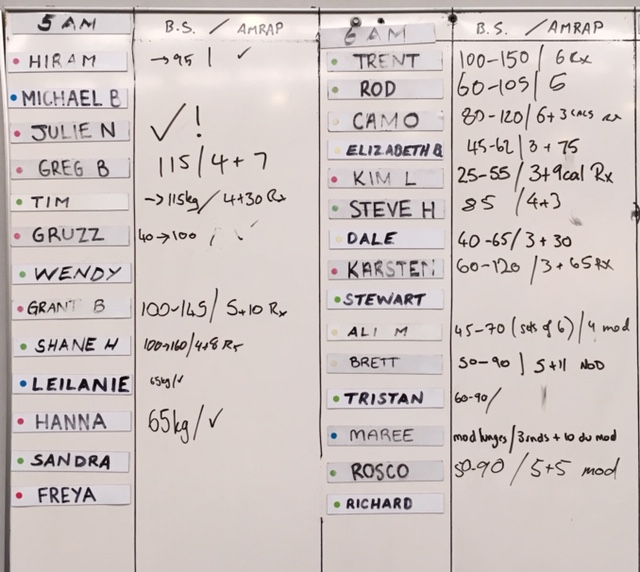 5 AM B.S. / AMRAP
HIRAM →95 / ✓
MICHAEL B
JULIE N ✓ !
GREG B 115/4+7
TIM →115kg/ 4+30 Rx
GRUZZ 40→100 / ✓
WENDY
GRANT B 100-145/ 5+10 Rx
SHANE H 100→160/4+8 Rx
LEILANIE 65kg/✓
HANNA 65kg/✓
SANDRA
FREYA
6 AM B.S. / AMRAP
TRENT 100-150/ 6 Rx
ROD 60-105/ 6
CAMO 80-120/6+3 cals rx
ELIZABETH B 45-62/3+75
KIM L 25-55/3+9cal Rx
STEVE H 85 /4+3
DALE 40-65/3+30
KARSTEN 60-120/3+65Rx
STEWART
ALI M 45-70 (sets of 6)/4 mod
BRETT 50-90 / 5+11 MOD
TRISTAN 60-90/
MAREE mod lunges/3rnds+10 du mod
ROSCO 50-90 /5+5 mod
RICHARD